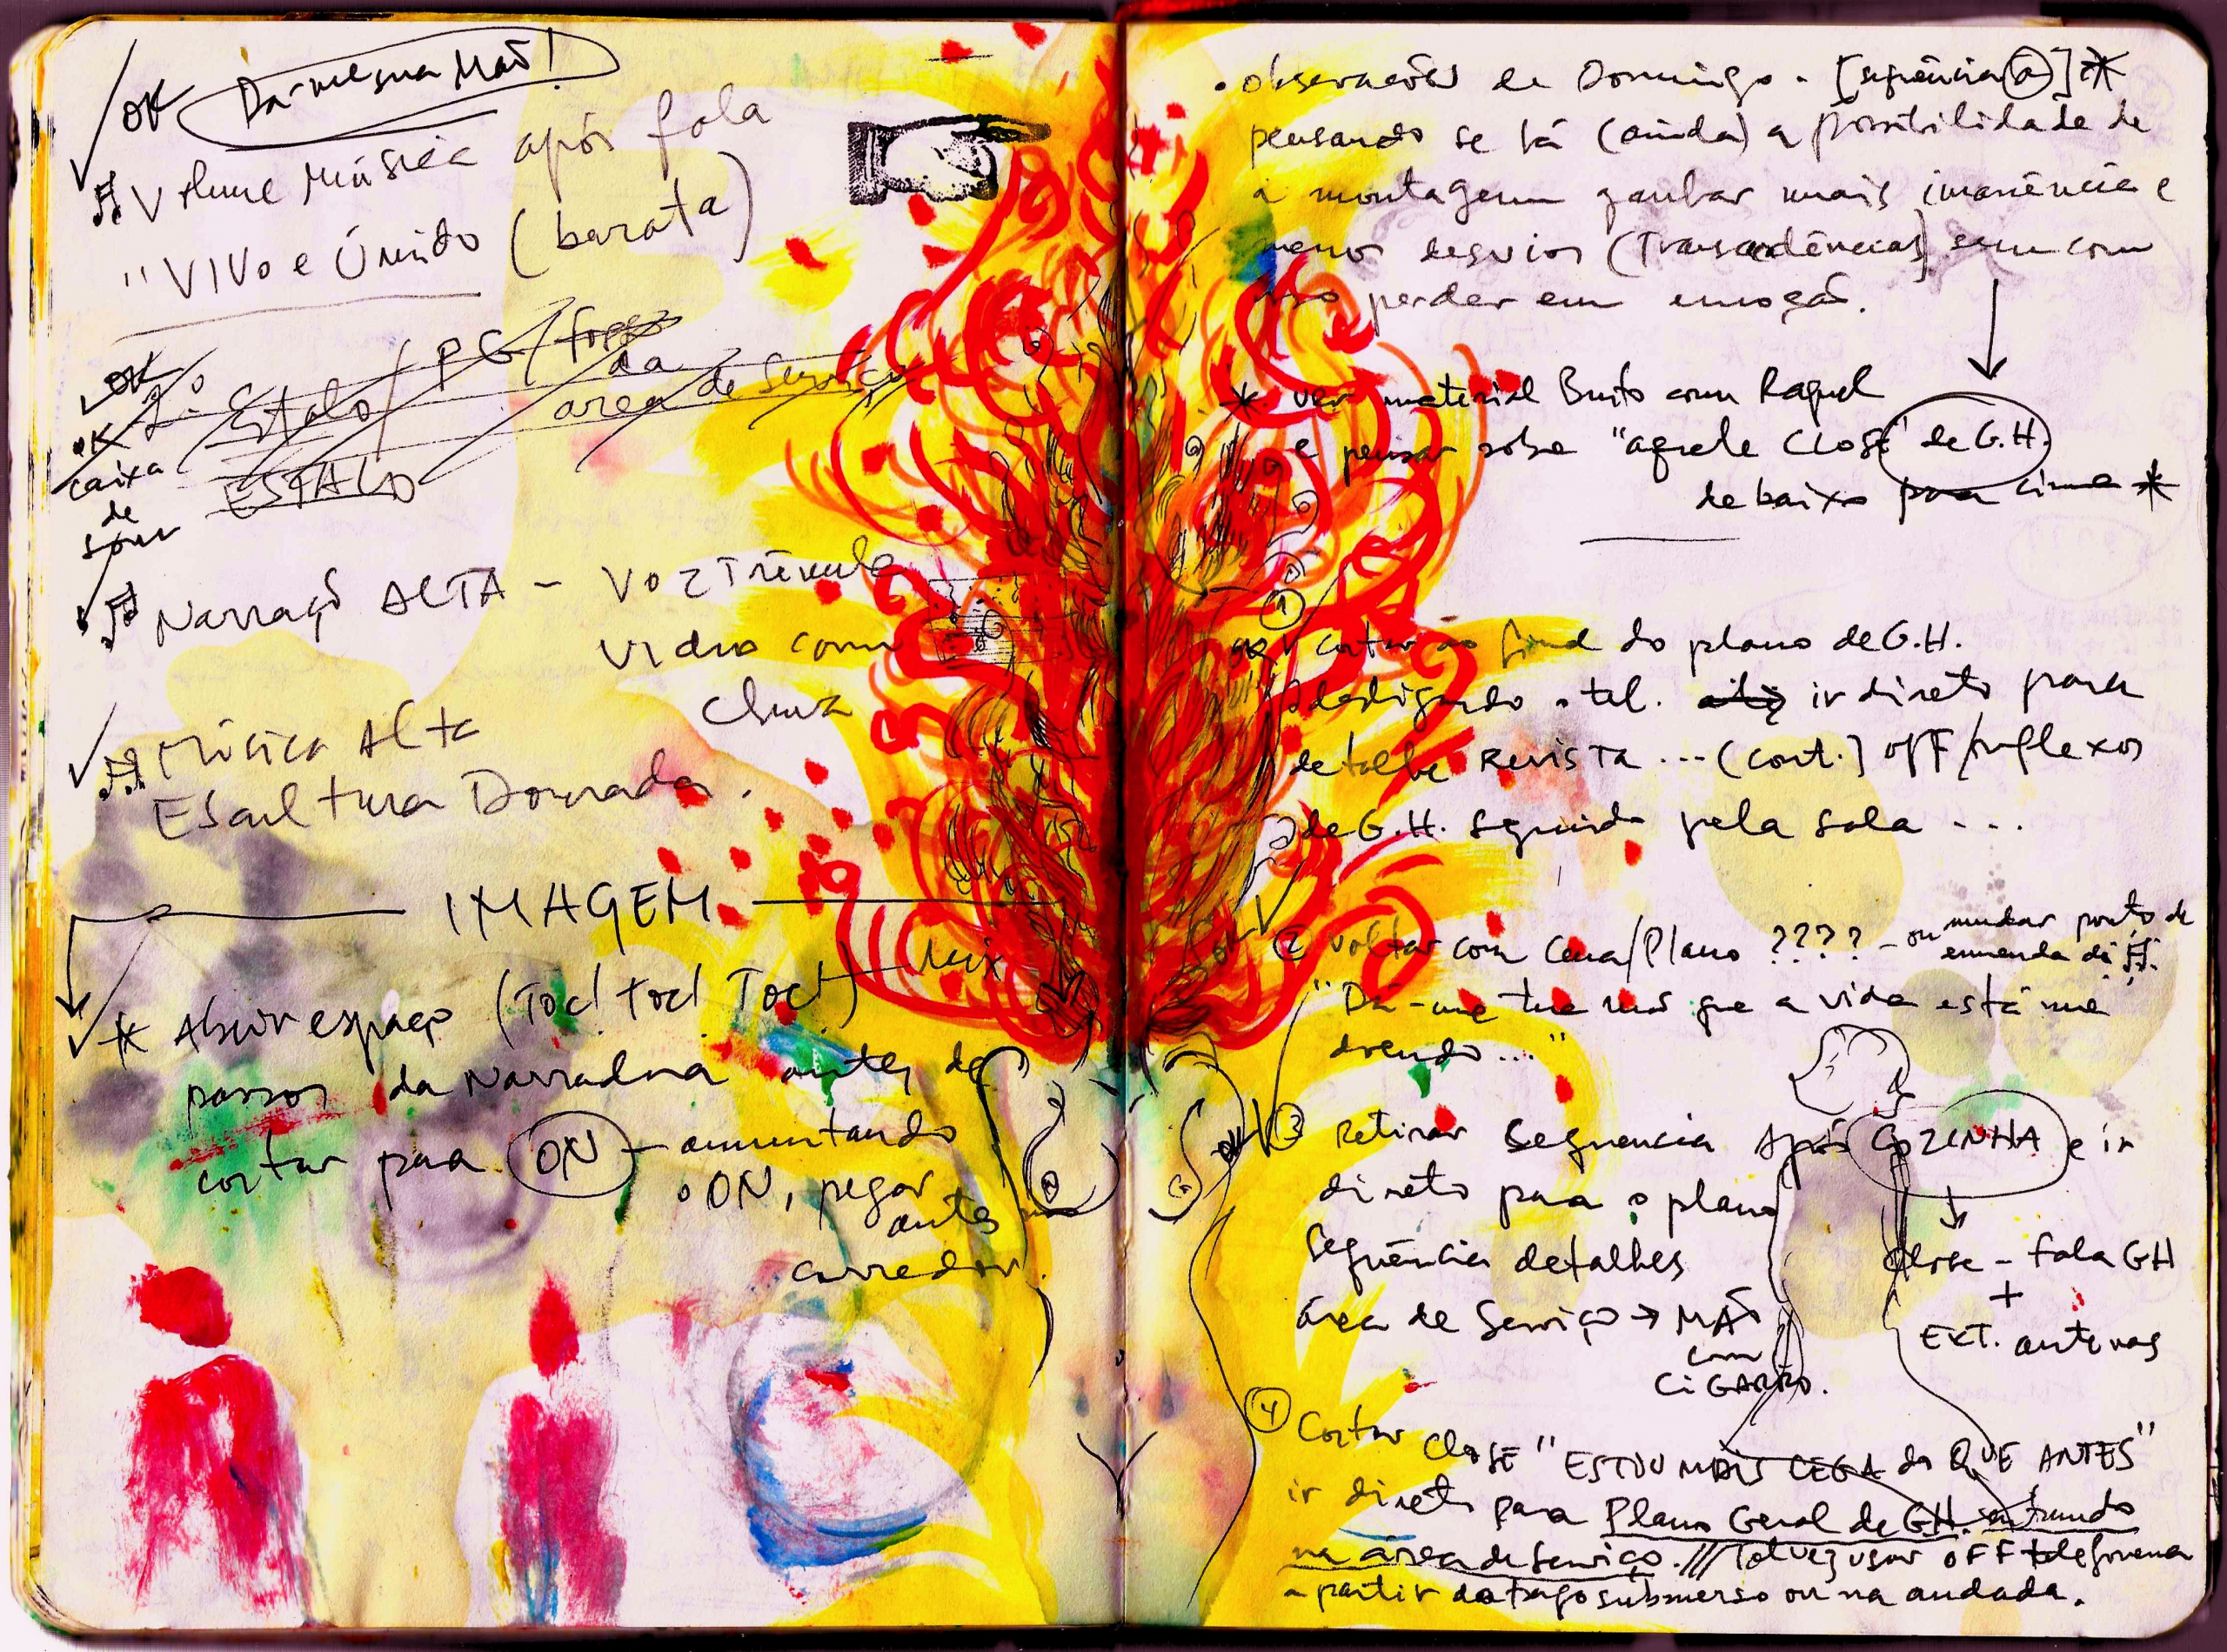 OK Dá-me sua Mão!
Volume Música após fala
"VIVO e Úmido (barata)
OK
2.º Estalo / PG / fogo
da
area de Serviço
OK
caixa
de
som
ESTALO
Narração ALTA - Voz Trêmula
vidro com
chuva
Música Alta
Escultura Dourada.
IMAGEM
* Abrir espaço (Toc! toc! Toc!) Mix
passos da Narradora antes de
cortar para ON - aumentando
o ON, pegar
antes
corredor.
. observações de Domingo - [sequência a] *
pensando se há (ainda) a possibilidade de
a montagem ganhar mais imanência e
menos desvios (Transcedências) sem com
isso perder em emoção.
* ver material Bruto com Raquel
e pensar sobre "aquele CLOSE" de G.H.
de baixo para cima *
1
OK cortar ao final do plano de G.H.
desligando o tel. ir direto para
detalhe REVISTA ... (cont.) OFF/reflexos
de G.H. seguindo pela sala ...
OK 2 voltar com Cena/Plano ???? - ou mudar ponto de
emenda da
"Dá-me tua mão que a vida está me
doendo..."
OK 3 Retirar Sequencia Após COZINHA e ir
direto para o plano
Sequência detalhes
área de Serviço → MÃO
com
CIGARRO.
Close - fala GH
+
EXT. antenas
4 Cortar CLOSE "ESTOU MAIS CEGA do QUE ANTES"
ir direto para Plano Geral de GH. entrando
na área de serviço. /// Talvez usar OFF telefonema
a partir do trago submerso ou na andada.